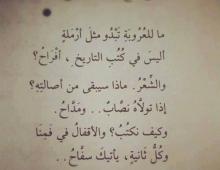 ما للعُروبَةِ تَبْدُو مثلَ أرْمَلةٍ
أليسَ في كُتُبِ التاريخِ، أفْرَاحُ؟
والشِّعْرُ. ماذا سيبقى من أصالتِهِ؟
إذا تولاَّهُ نَصَّابٌ.. ومَدَّاحُ
وكيف نكتُبُ؟ والأقفالُ في فَمِنَا
وكُلُّ ثَانيةٍ، يأتيكَ سفَّاحُ..